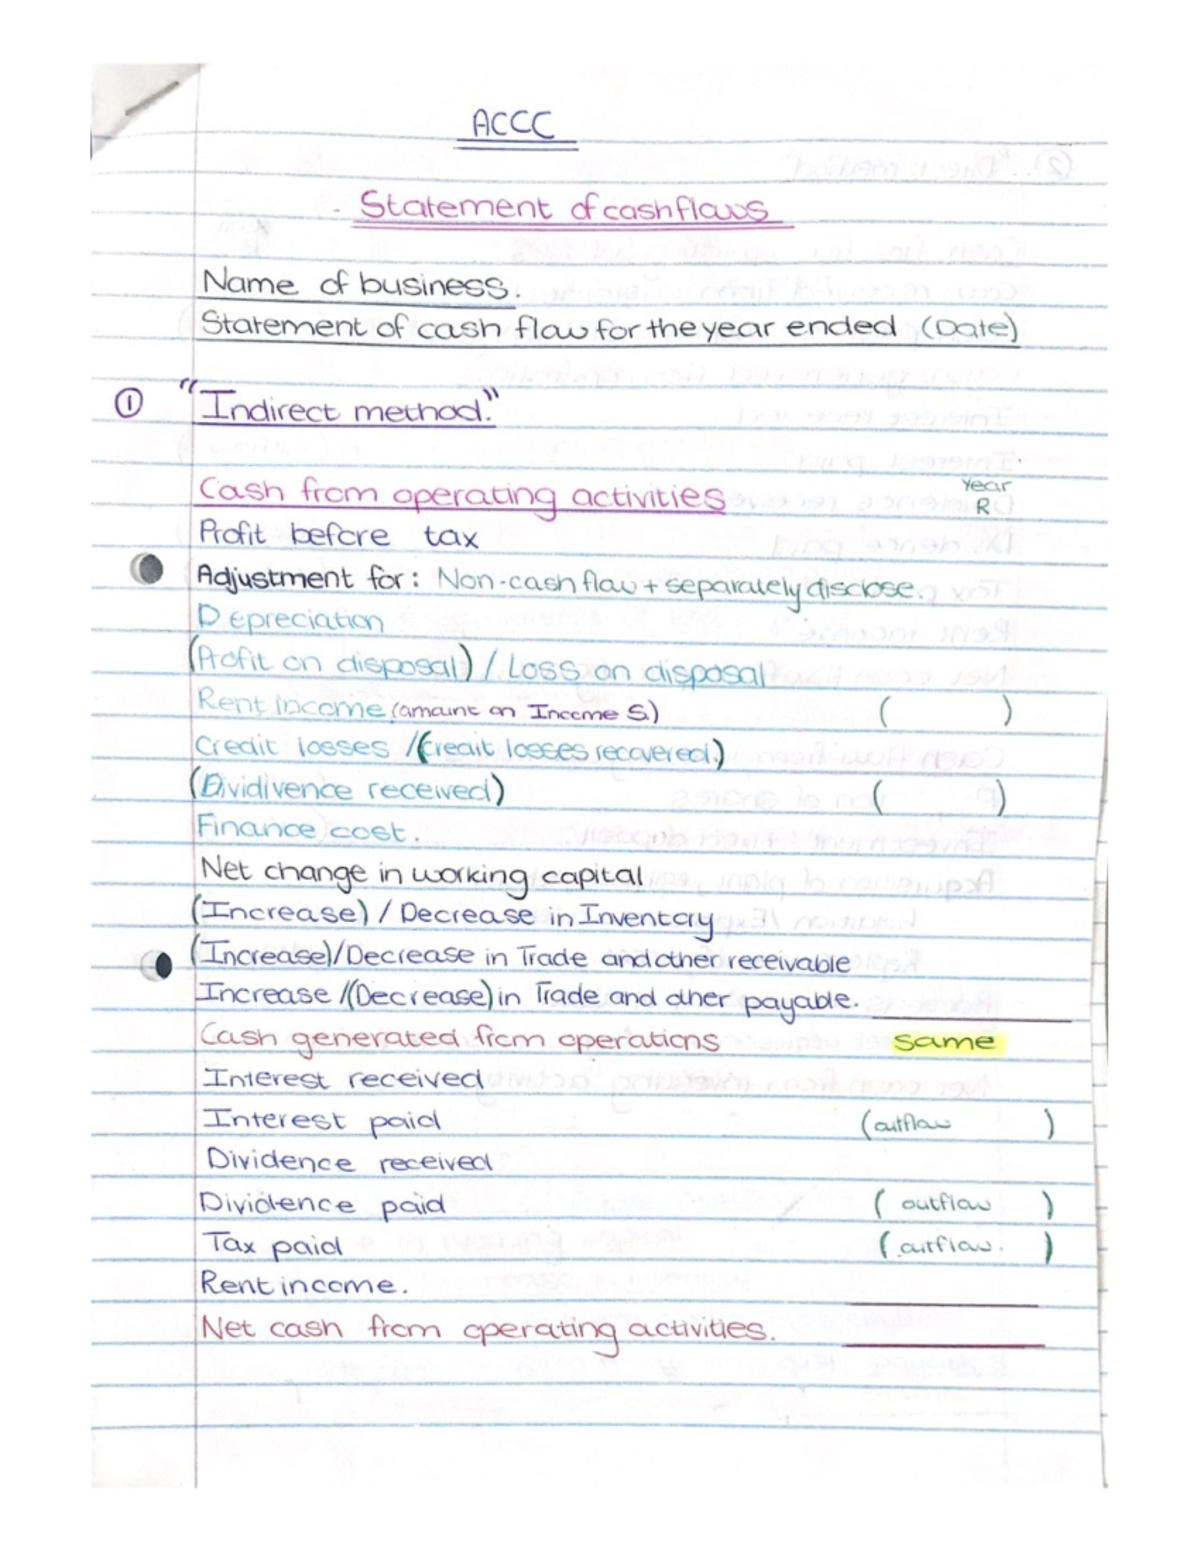 ACCC
Statement of cashflows
Name of business.
Statement of cash flow for the year ended (Date)
① "Indirect method."
Cash from operating activities Year
R
Profit before tax
Adjustment for: Non-cash flow + separately disclose.
Depreciation
(Profit on disposal) / Loss on disposal
Rent Income (amount on Income S.) ( )
Credit losses / (Credit losses recovered.)
(Dividivence received) ( )
Finance cost.
Net change in working capital
(Increase) / Decrease in Inventory
(Increase)/Decrease in Trade and other receivable
Increase /(Decrease) in Trade and other payable.
Cash generated from operations same
Interest received
Interest paid (outflow )
Dividence received
Dividence paid ( outflow )
Tax paid (.outflow. )
Rent income.
Net cash from operating activities.